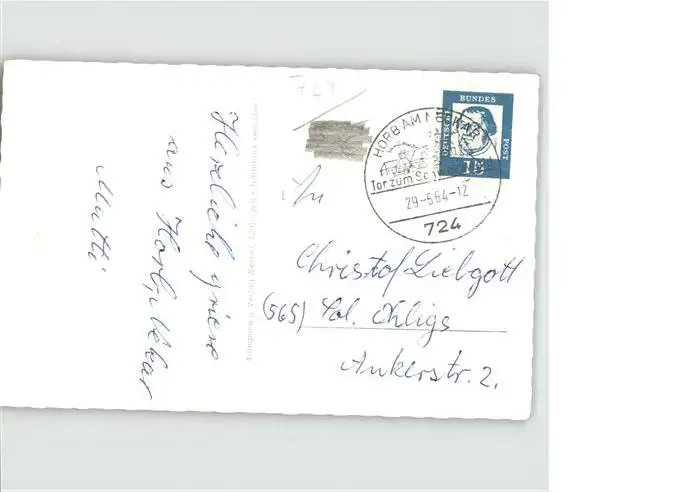 Herzliche Grüsse
aus Horb, Neckar
Mutti
724
HORB AM NECKAR
Tor zum
29.-5.64-12
724
DEUTSCHE
BUNDES
POST
15
An
Christof Liebgott
(565) Sol. Ohligs
Ankerstr. 2.